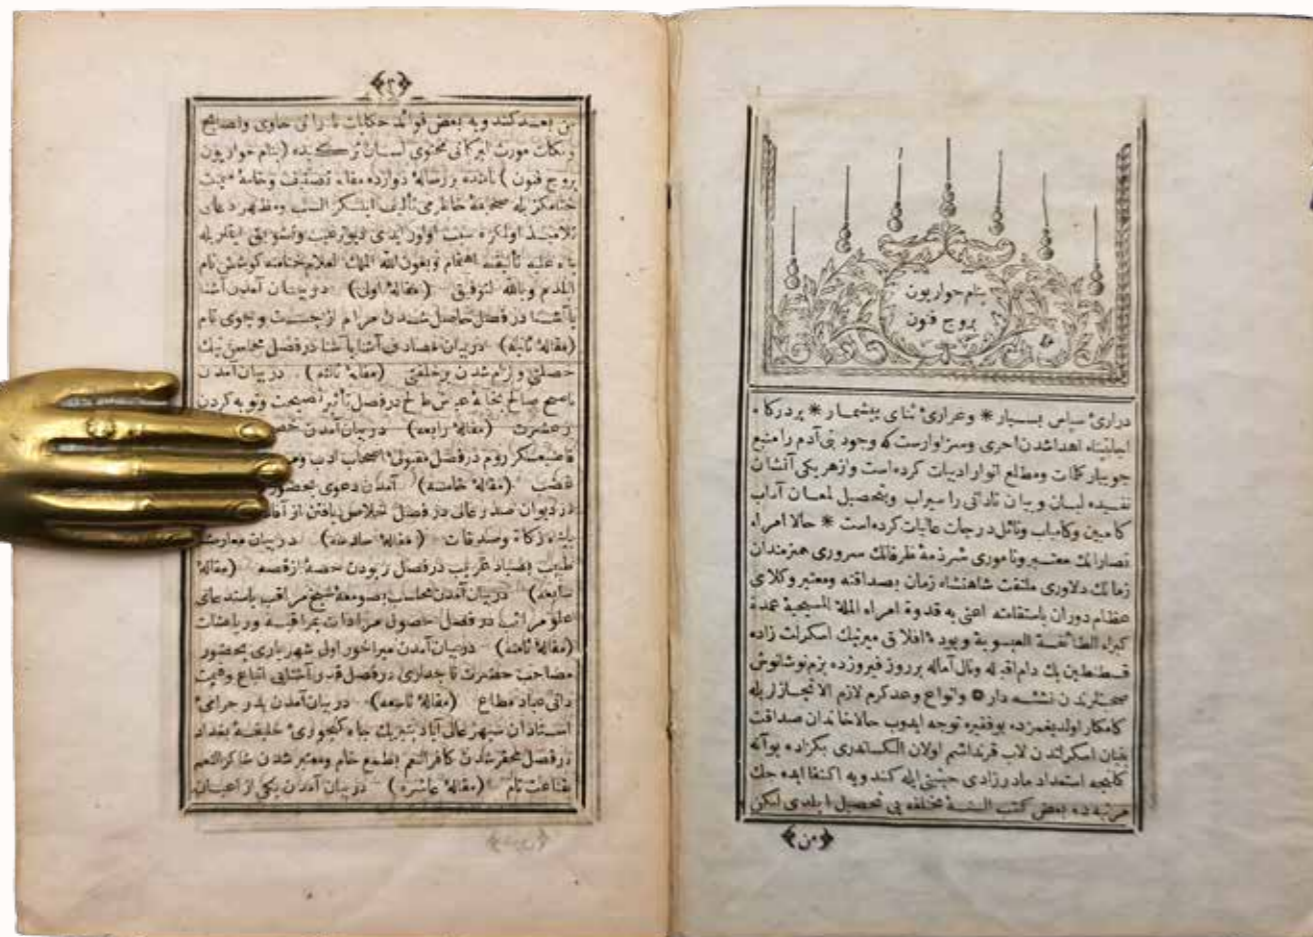 بنام حواریون
بروج فنون
دراریٔ سپاس بسیار * وغراریٔ ثنای بیشمار * بردرکاه
اهداشدن احری وسزاوارست که وجود بنی آدم را منبع
جویبار کلمات ومطلع انوار ادبیات کرده است وازهریکی آتشان
لسان وبیان نادانی را سیراب وبتحصیل لمعان آداب
کامبین وکامیاب ونائل درجات عالیات کرده است * حالا امراء
نصارانک معتبر وناموری شرذمهٔ ظرفانک سروری هنرمندان
زمانک دلاوری ملتفت شاهنشاه زمان بصداقته ومعتبر وکلای
عظام دوران باستقامته اعنی به قدوة امراء الملة المسیحیة عمدة
کبراء الطائفة العیسویة افلاق میرینک اسکرلت زاده
قسطنطین بك دام اقباله ونال آماله برروز فیروزده بزم نوشانوش
صحبتلرندن نشئه دار وانواع وعد کرم لازم الانجازلریله
کامکار اولدیغمزده بوفقیره توجه ایدوب حالا خاندان صداقت
بنیان اسکرلتدن قرنداشم اولان الکساندری بکزاده بوآنه
کلنجه استعداد مادرزادی حیثیتی ایله کندویه اکتفا ایده جك
مرتبه ده بعض کتب السنهٔ مختلفه یی تحصیل ایلدی لیکن
ومن
٢
من بعد کندویه بعض فوائد حکایات نادرانی حاوی ونصایح
ونکات مورث البرکاتی محتوی لسان ترکیده (بنام حواریون
بروج فنون) نامنده بررسالهٔ دوازده مقاله تصنیف وخامهٔ
ختامکزیله صحیفهٔ خاطرمی تألیف ایلسکز البته ومظهر دعای
تلامیذ اولمکزه سبب اولور ایدی دیو ترغیب وتشویق ایتملریله
بناء علیه تألیفنه اهتمام وبعون الله الملك العلام ختامنه کوشش تام
ایلدم وبالله التوفیق (مقالهٔ اولی) دربیان آمدن آشنا
باآشنا درفصل حاصل شدن مرام ازجست وجوی تام
(مقالهٔ ثانیه) دربیان تصادف آشنا باآشنا درفصل محاسن نیك
خصلتی شدن برخلقتی (مقالهٔ ثالثه) دربیان آمدن
ناصح صالح بخانهٔ عیاش طالح درفصل تأثیر نصیحت وتوبه کردن
ازعشرت (مقالهٔ رابعه) دربیان آمدن
قاضیعسکر روم درفصل مقبولی اصحاب ادب
(مقالهٔ خامسه) آمدن دعوی بحضور
دردیوان صدر عالی درفصل خلاص یافتن از
زکاة وصدقات (مقالهٔ سادسه) دربیان
طبیب بصیاد غریب درفصل ربودن حصه ازقصه (مقالهٔ
سابعه) دربیان آمدن محاسب بصومعهٔ شیخ مراقب باستدعای
علو مراتب درفصل حصول مرادات بمراقبه وریاضات
(مقالهٔ ثامنه) دربیان آمدن میراخور اول شهریاری بحضور
مصاحب حضرت تاجداری درفصل قدر آشنایی اتباع
(مقالهٔ تاسعه) دربیان آمدن پدر
استادان خلیفهٔ بغداد
درفصل محقر شدن کافر النعم بطمع خام ومعتبر شدن شاکر النعم
بقناعت تام (مقالهٔ عاشره) دربیان آمدن یکی از اعیان